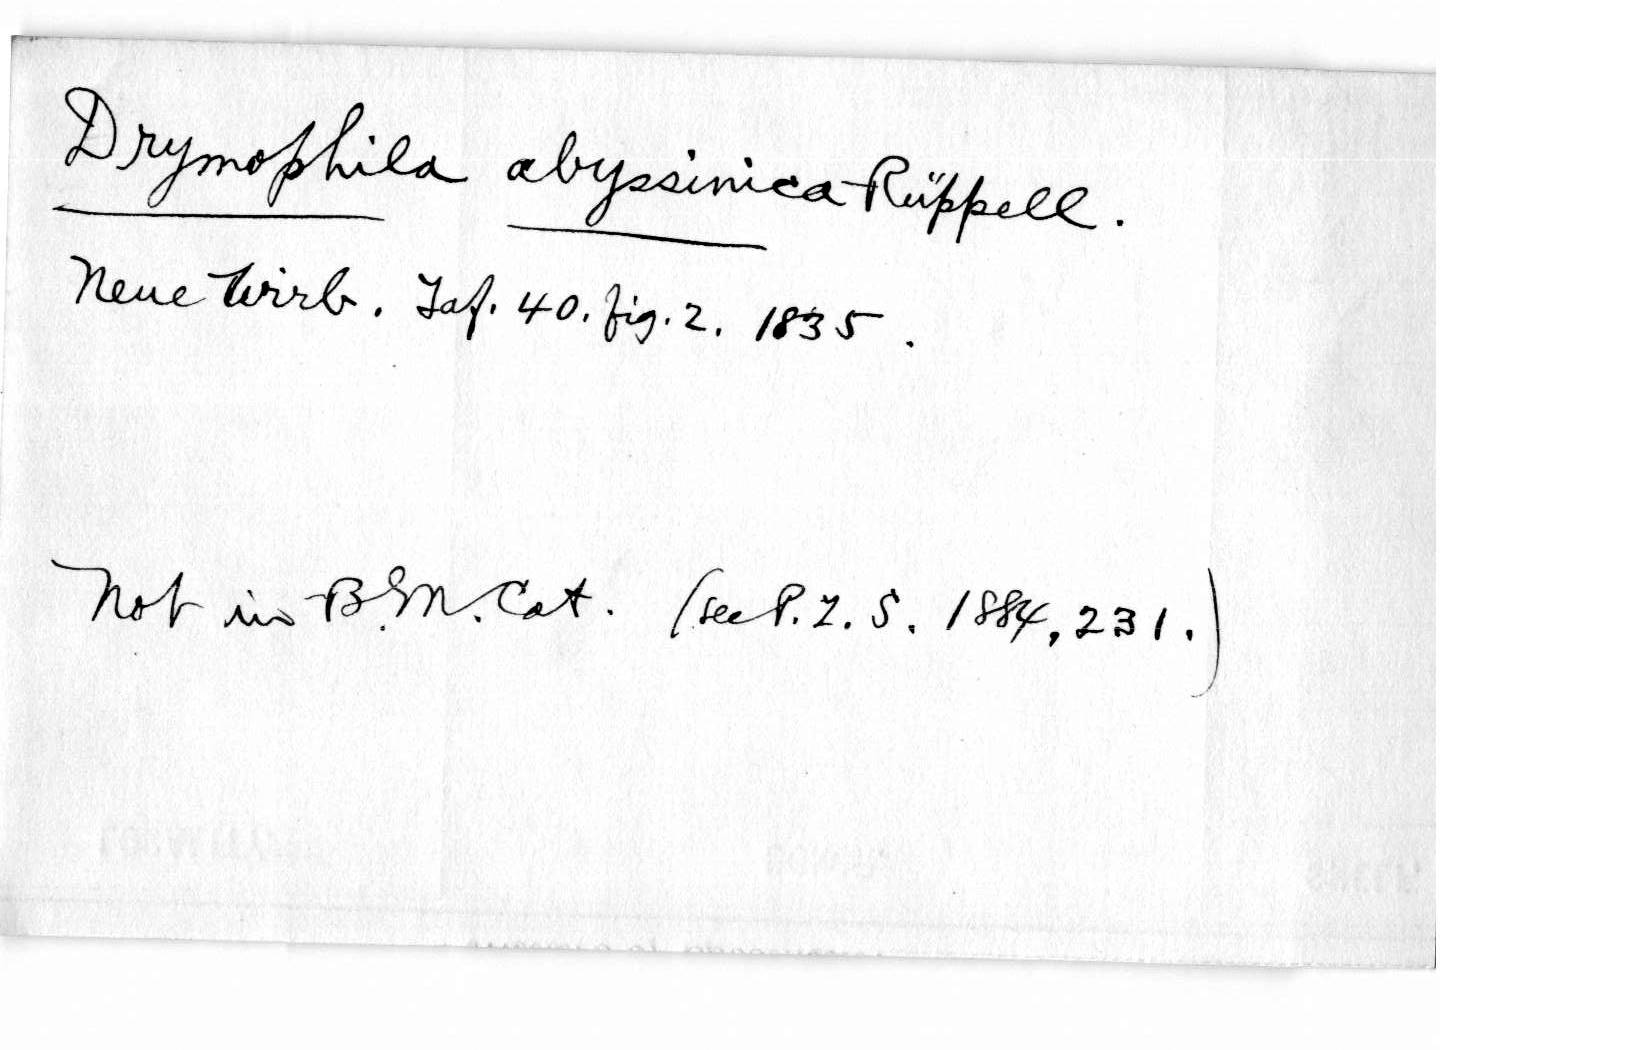 Drymophila abyssinica Rüppell.
Neue Wirb. Taf. 40. fig. 2. 1835.
Not in B.M. Cat. (see P. Z. S. 1884, 231.)